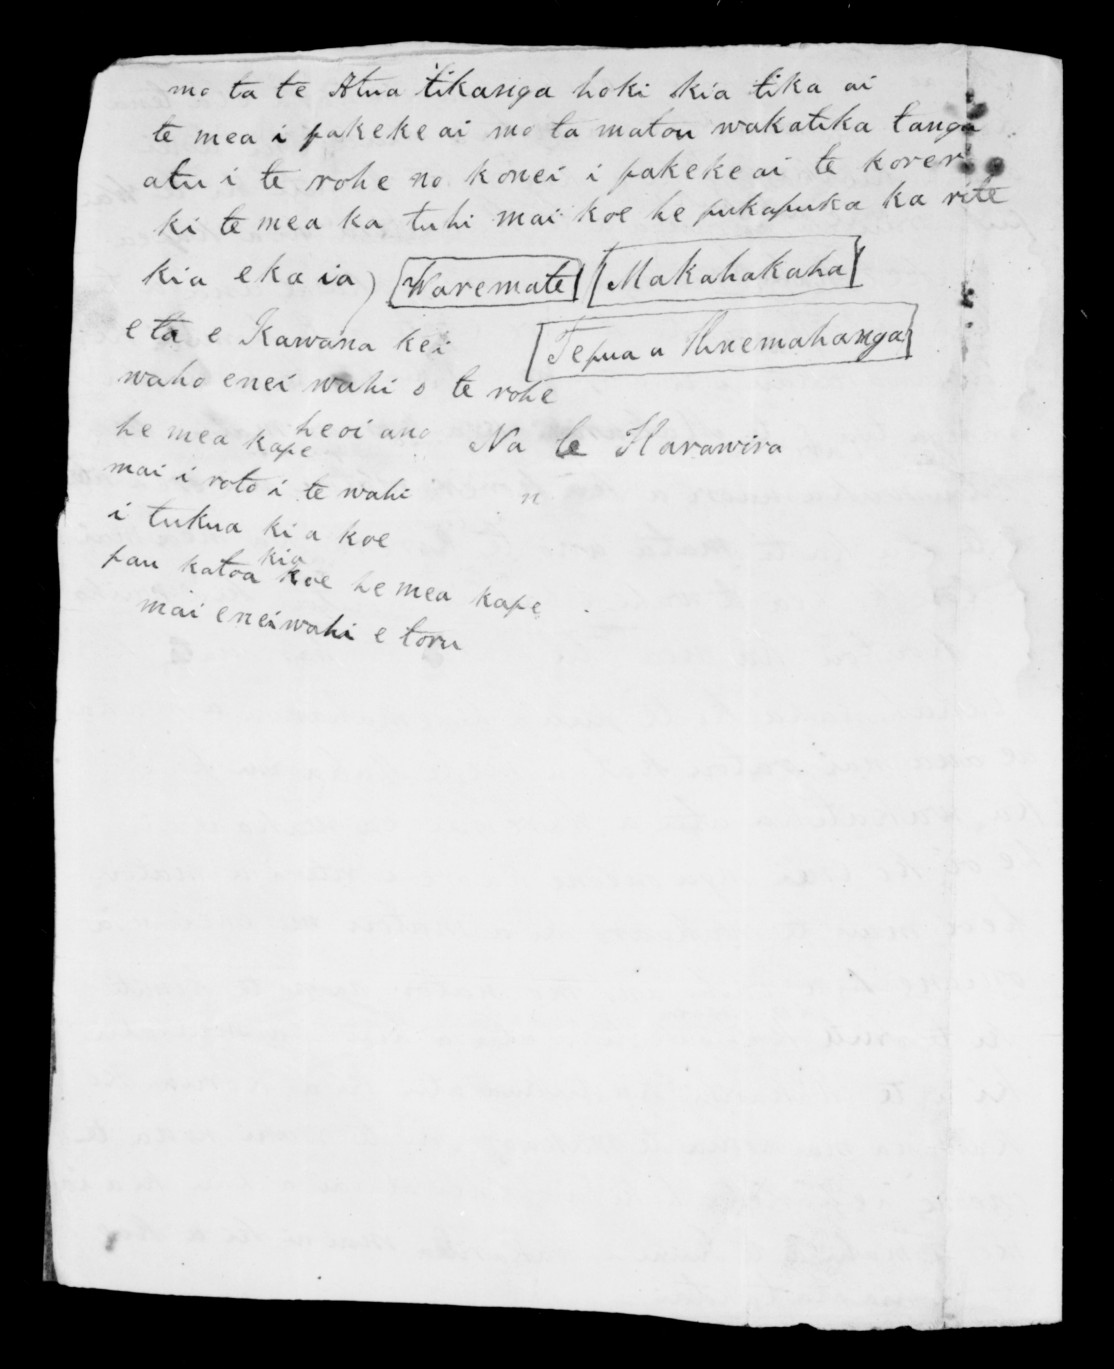 mo ta te Atua tikanga hoki kia tika ai
te mea i pakeke ai mo ta matou wakatika tanga
atu i te rohe no konei i pakeke ai te korero
ki te mea ka tuhi mai koe he pukapuka ka rite
kia ekaia) Waremate Makahakaha
e ta e Kawana kei Tepua a Hinemahanga
waho enei wahi o te rohe
heoi ano Na te Harawira
he mea kape
mai i roto i te wahi n
i tukua ki a koe
kia
pau katoa koe he mea kape
mai eneiwahi e toru